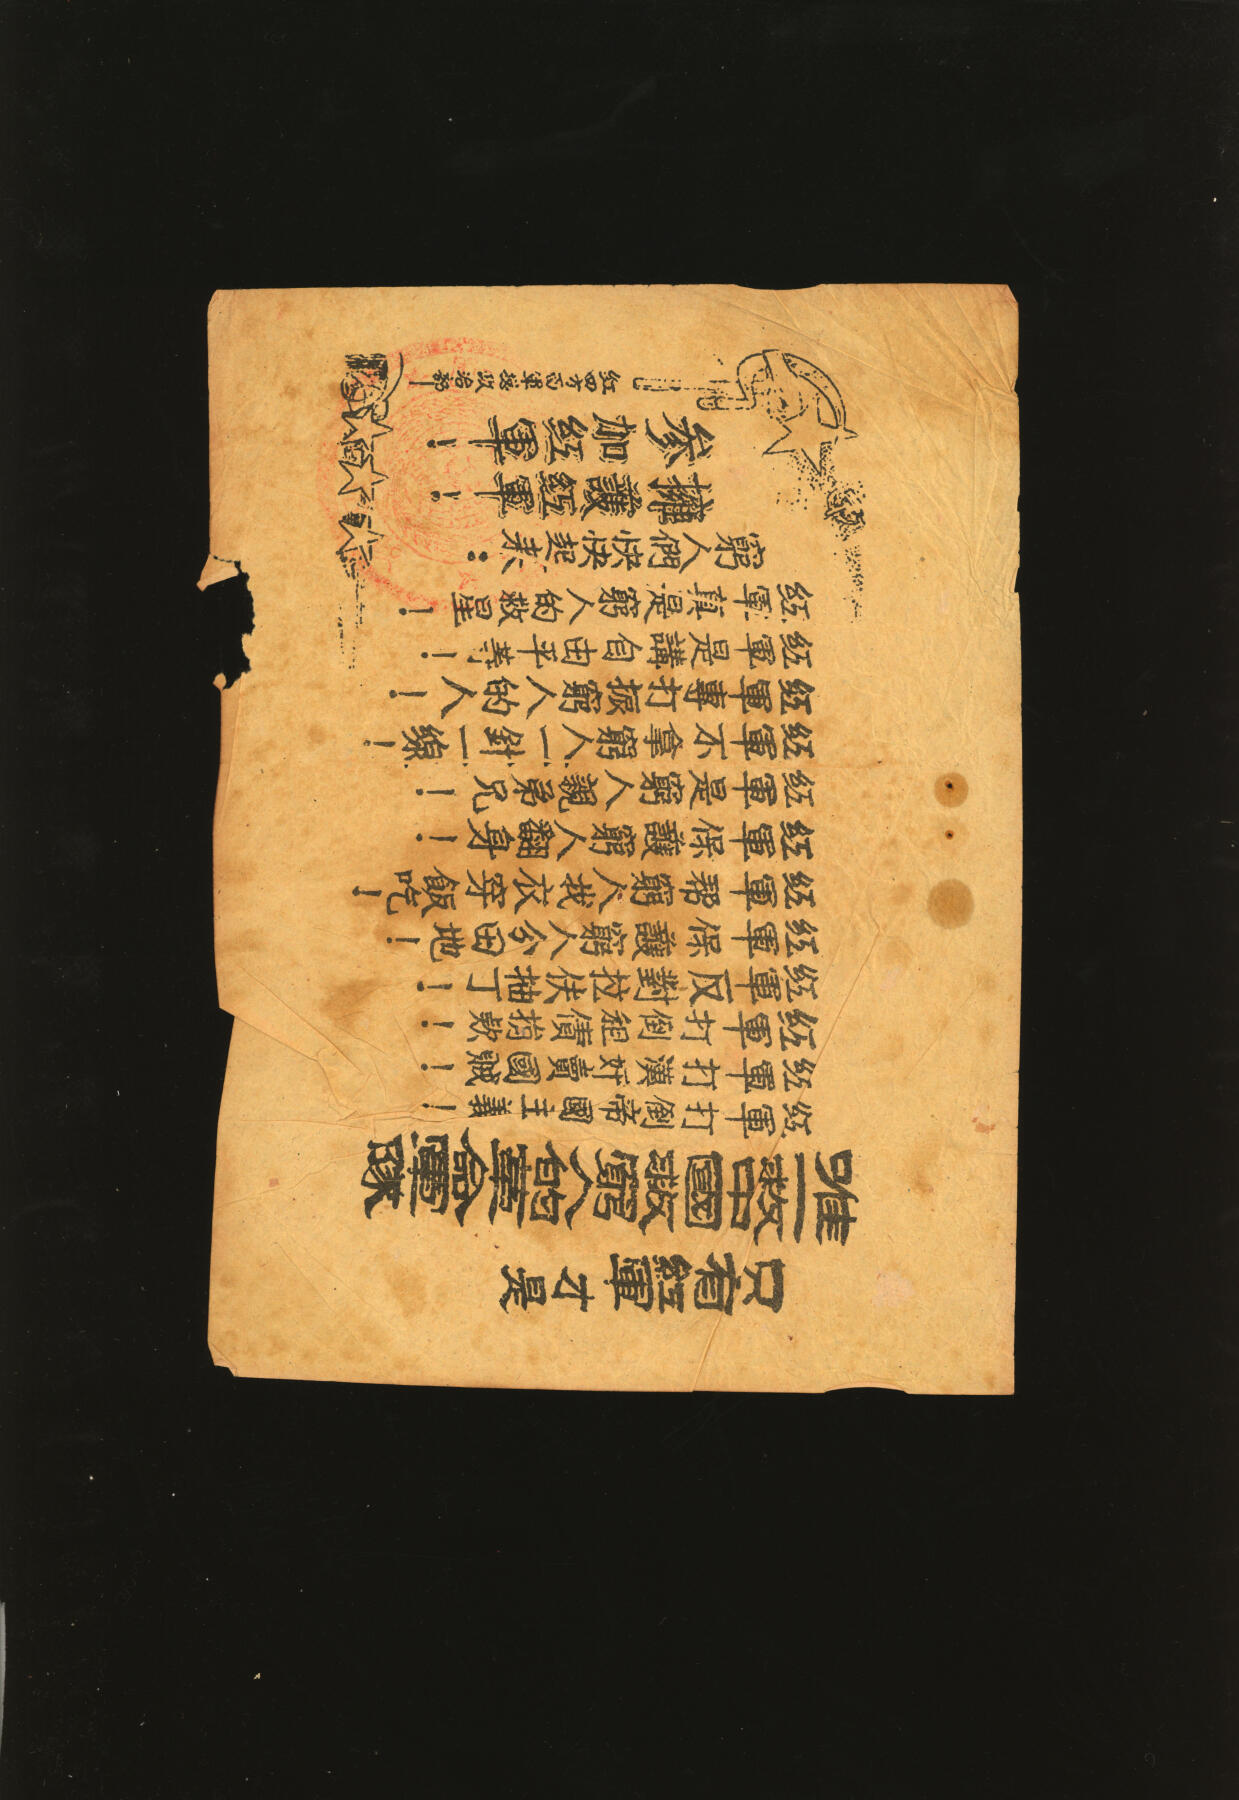 只有紅軍才是
唯一救中國救窮人的革命軍隊
紅軍打倒帝國主義！
紅軍打漢奸賣國賊！
紅軍打倒租債捐款！
紅軍反對拉伕抽丁！
紅軍保護窮人分田地！
紅軍帮窮人找衣穿飯吃！
紅軍保護窮人翻身！
紅軍是窮人親弟兄！
紅軍不拿窮人一針一線！
紅軍專打振窮人的人！
紅軍是講自由平等！
紅軍真是窮人的救星！
窮人們快快起來：
擁護紅軍！
參加紅軍！
紅四方面軍總政治部